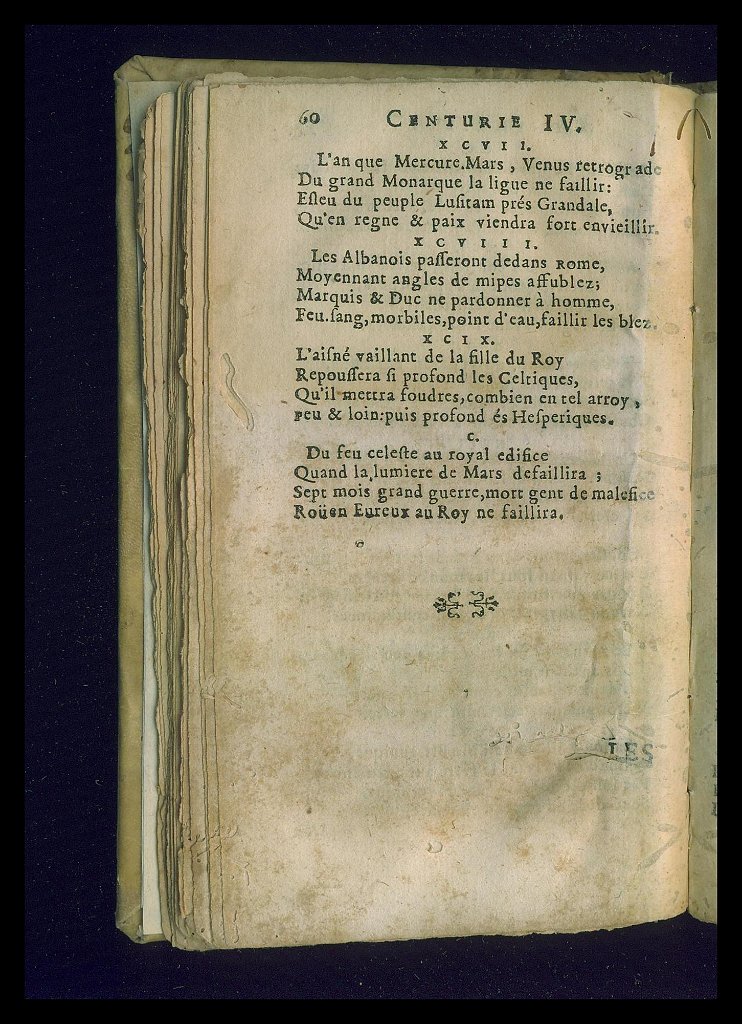 60 CENTURIE IV.
XCVII.
L'an que Mercure.Mars, Venus retrograde
Du grand Monarque la ligue ne faillir:
Eſleu du peuple Luſitam prés Grandale,
Qu'en regne & paix viendra fort envieillir.
XCVIII.
Les Albanois paſſeront dedans Rome,
Moyennant angles de mipes affublez;
Marquis & Duc ne pardonner à homme,
Feu.ſang,morbiles,point d'eau,faillir les blez.
XCIX.
L'aiſné vaillant de la fille du Roy
Repouſſera ſi profond les Celtiques,
Qu'il mettra foudres,combien en tel arroy,
Peu & loin:puis profond és Heſperiques.
C.
Du feu celeſte au royal edifice
Quand la lumiere de Mars defaillira ;
Sept mois grand guerre,mort gent de malefice
Roüen Eureux au Roy ne faillira.
LES